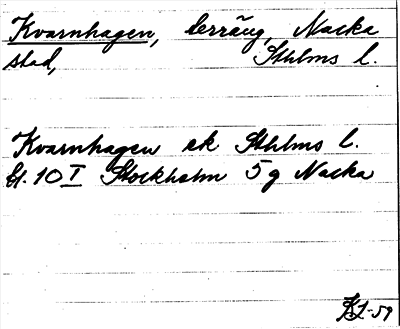 Kvarnhagen, terräng, Nacka
stad, Sthlms l.
Kvarnhagen ek Sthlms l.
bl. 10 I Stockholm 5 g Nacka